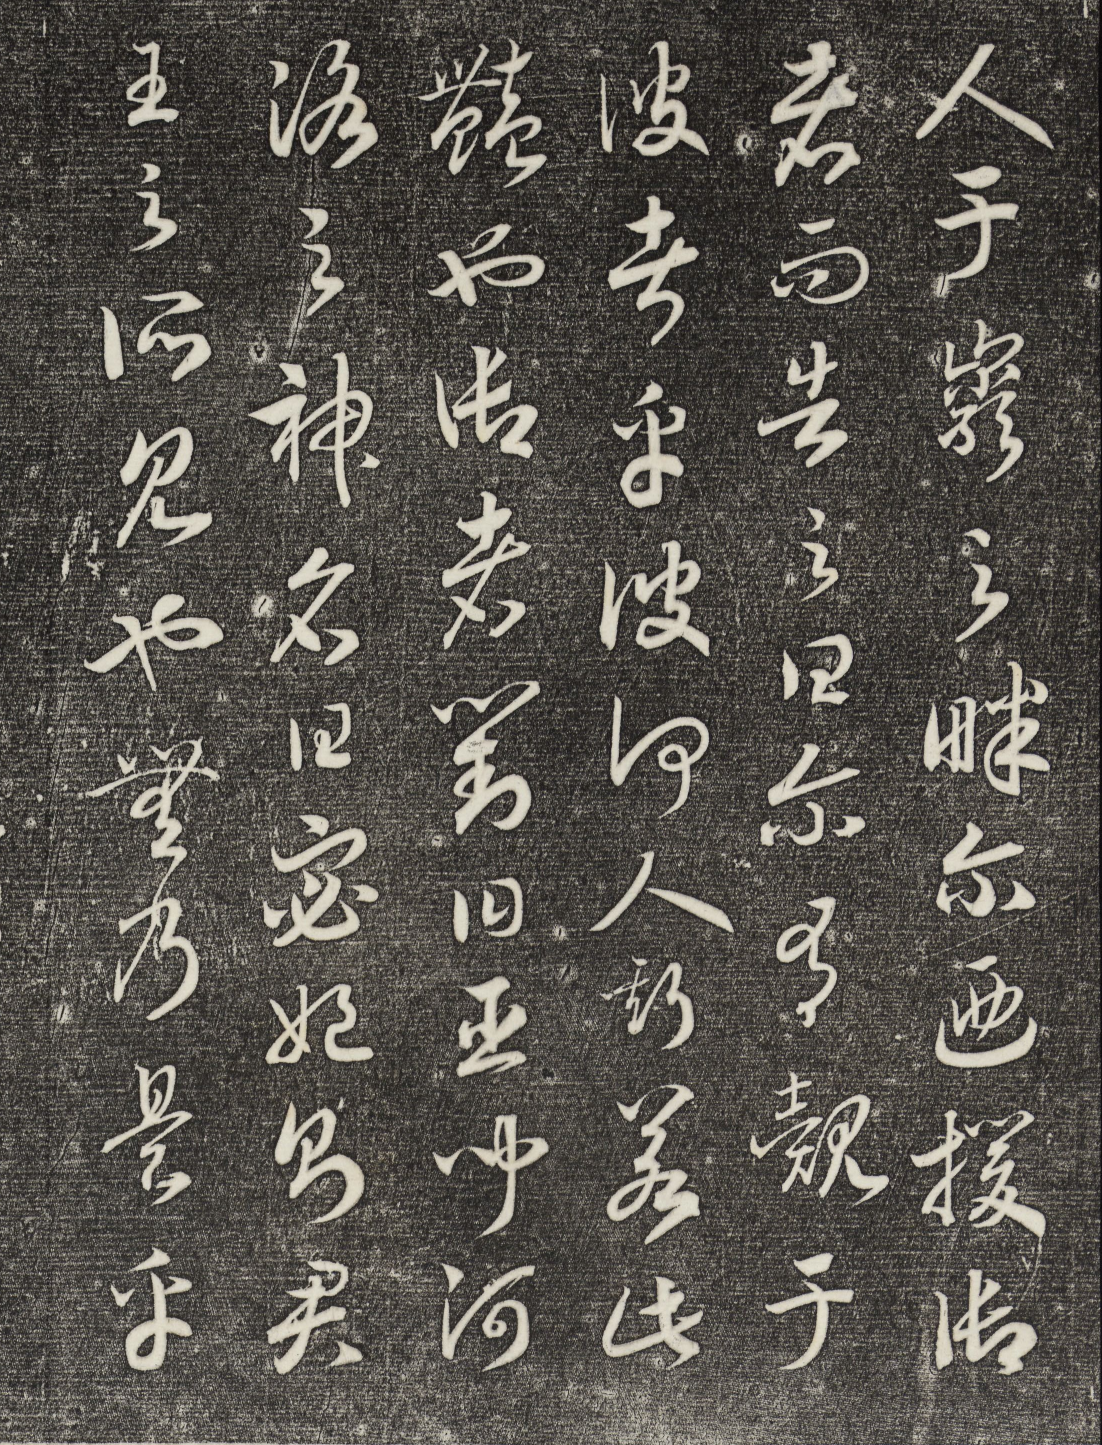 人于巖之畔尔迺援御
者而告之曰尔有覿于
彼者乎彼何人斯若此
豔也御者對曰臣聞河
洛之神名曰宓妃則君
王之所見也無乃是乎